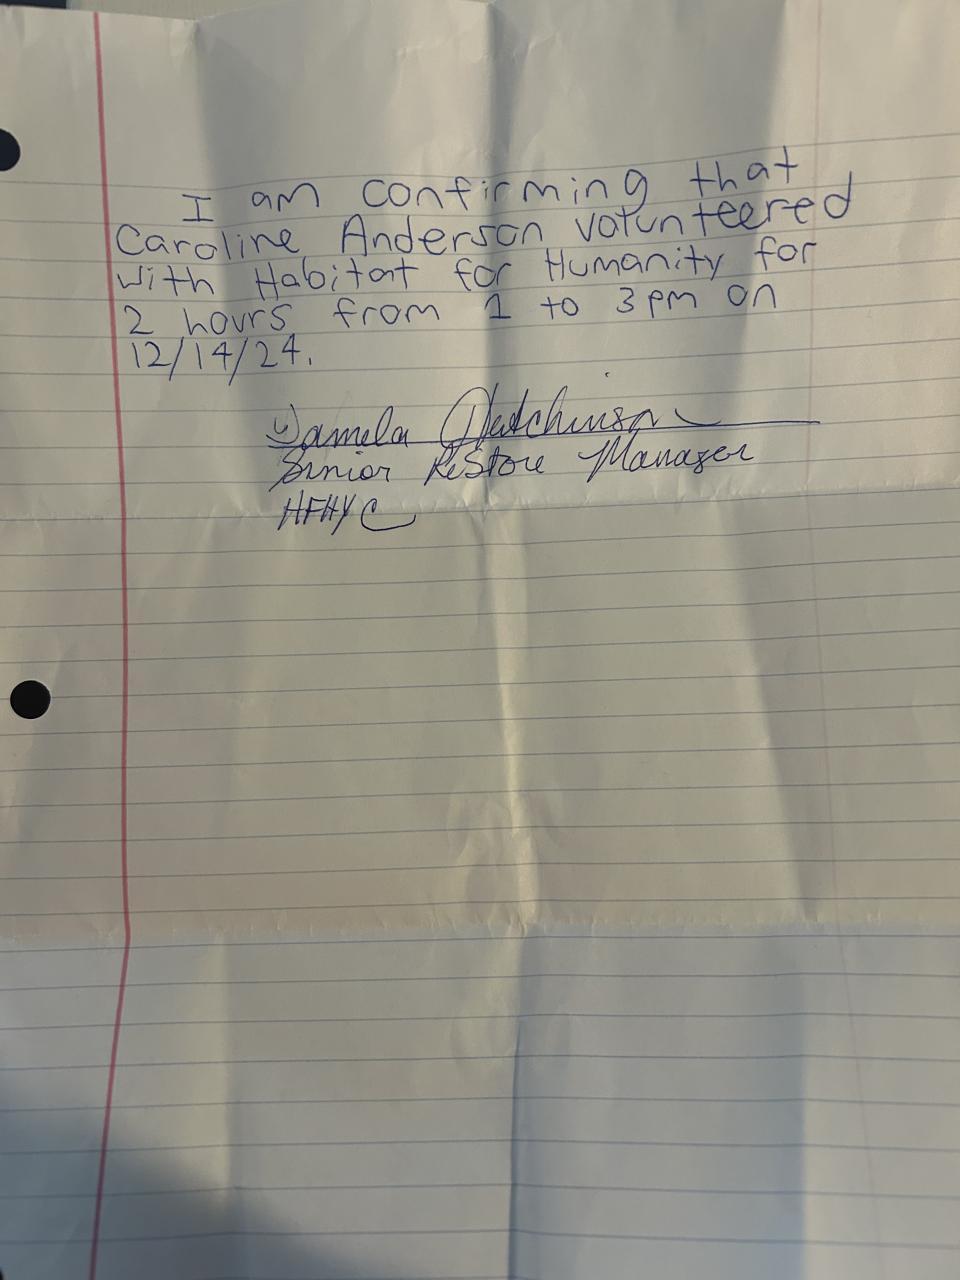 I am confirming that
Caroline Anderson volunteered
with Habitat for Humanity for
2 hours from 1 to 3pm on
12/14/24.
Pamela Hutchinson
Senior ReStore Manager
HFHYC